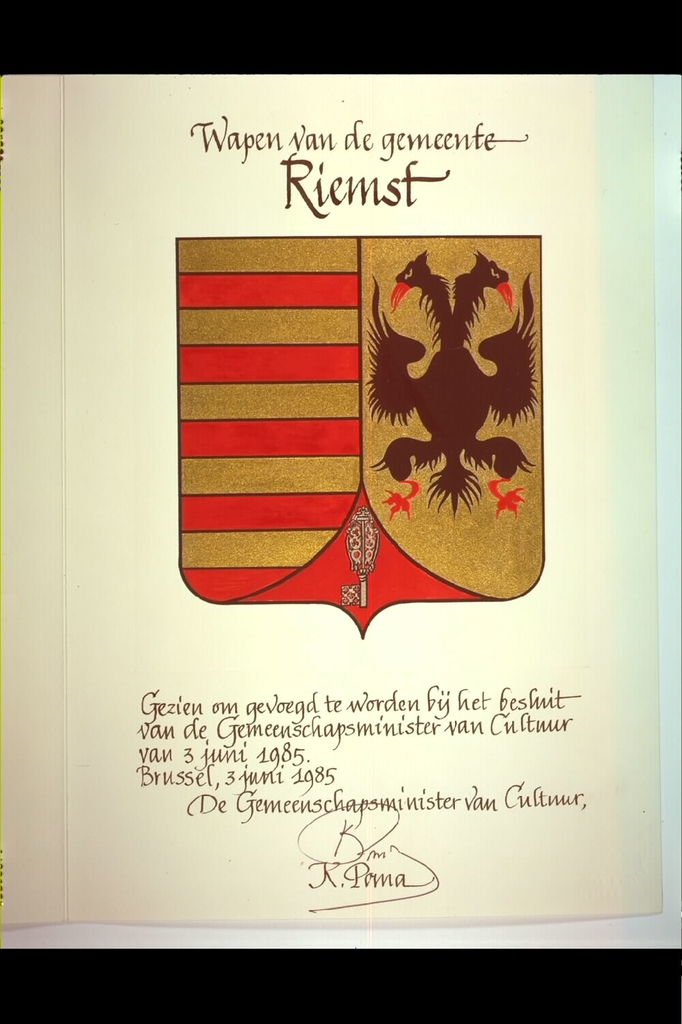 Wapen van de gemeente
Riemst
Gezien om gevoegd te worden bij het besluit
van de Gemeenschapsminister van Cultuur
van 3 juni 1985.
Brussel, 3 juni 1985
De Gemeenschapsminister van Cultuur,
K. Poma